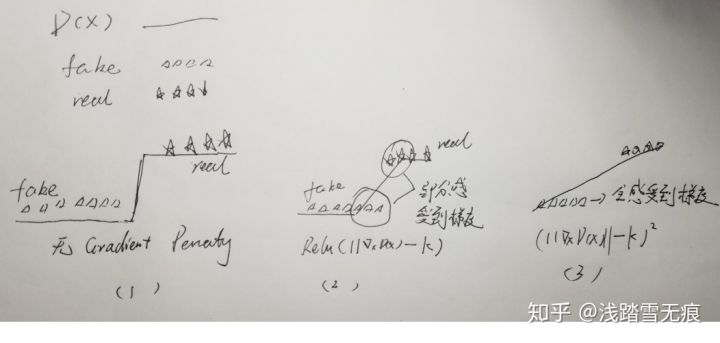 D(x)
fake
real
fake
real
无 Gradient Penalty
(1)
real
fake
部分感
受到梯度
Relu(||∇xD(x)||-k)
(2)
→ 全感受到梯度
(||∇xD(x)||-k)²
(3)
知乎 @浅踏雪无痕